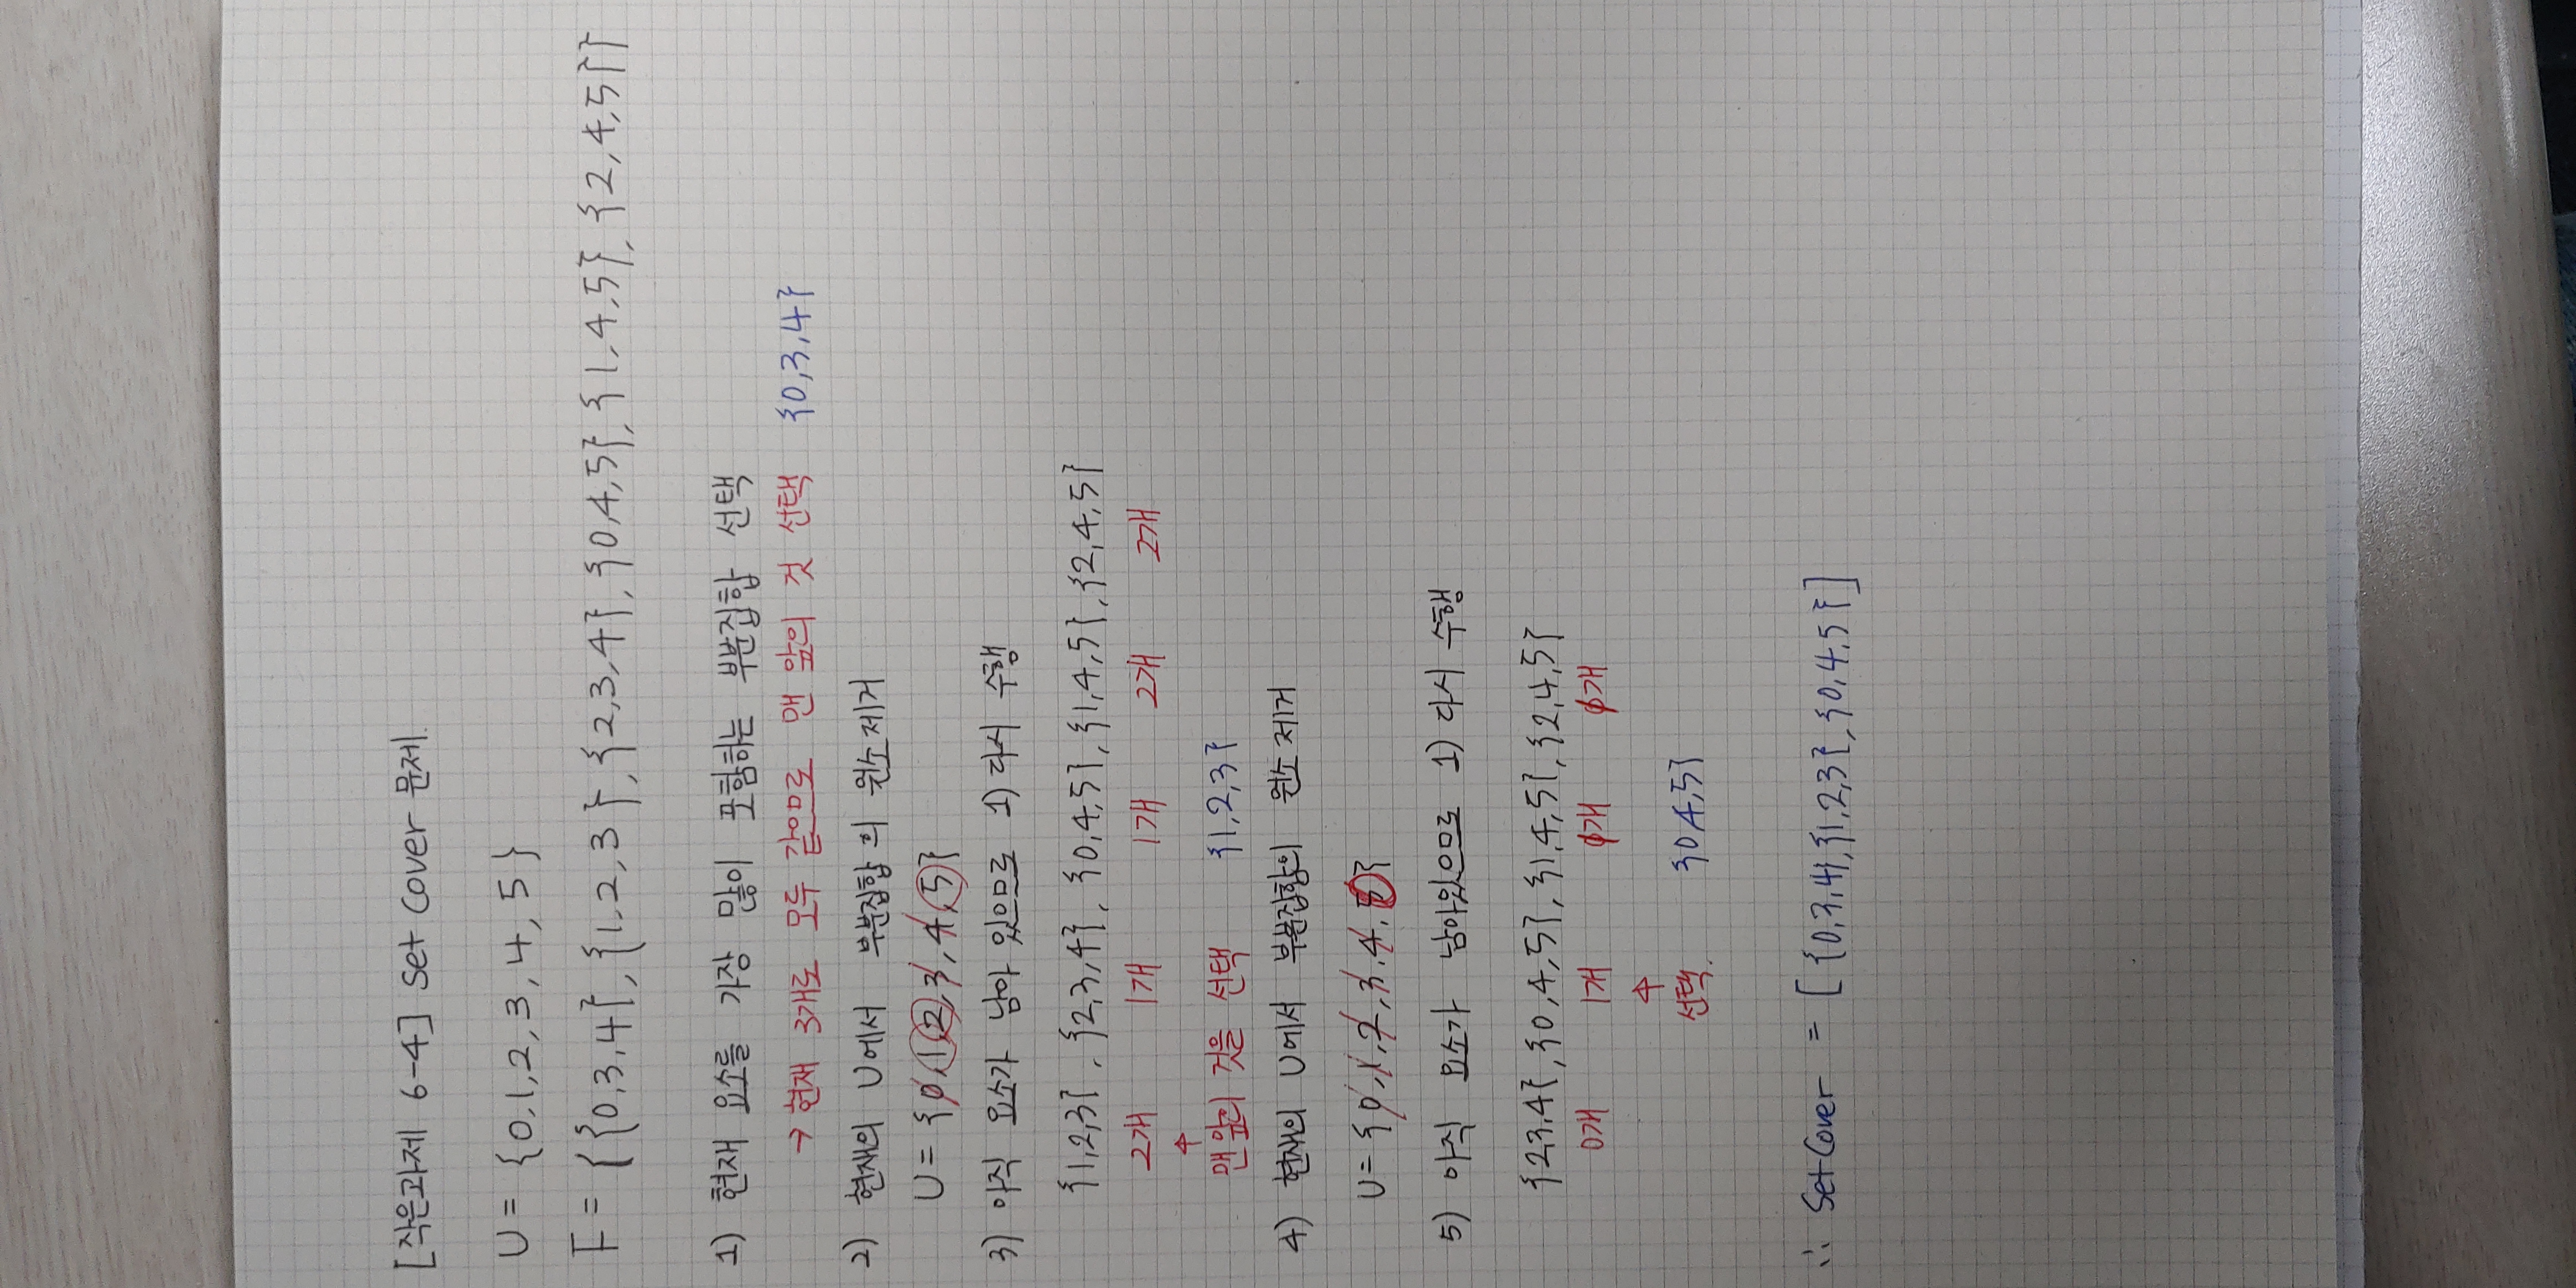 [작은과제 6-4] Set Cover 문제.
U = {0,1,2,3,4,5}
F = {{0,3,4},{1,2,3},{2,3,4},{0,4,5},{1,4,5},{2,4,5}}
1) 현재 요소를 가장 많이 포함하는 부분집합 선택
→ 현재 3개로 모두 같으므로 맨 앞의 것 선택 {0,3,4}
2) 현재의 U에서 부분집합의 원소 제거
U = {0,1,2,3,4,5}
3) 아직 요소가 남아 있으므로 1) 다시 수행
{1,2,3}, {2,3,4}, {0,4,5}, {1,4,5}, {2,4,5}
2개 1개 1개 2개 2개
↑
맨 앞의 것을 선택 {1,2,3}
4) 현재의 U에서 부분집합의 원소 제거
U = {0,1,2,3,4,5}
5) 아직 요소가 남아있으므로 1) 다시 수행
{2,3,4}, {0,4,5}, {1,4,5}, {2,4,5}
0개 1개 개 개
↑
선택. {0,4,5}
∴ SetCover = [{0,3,4},{1,2,3},{0,4,5}]